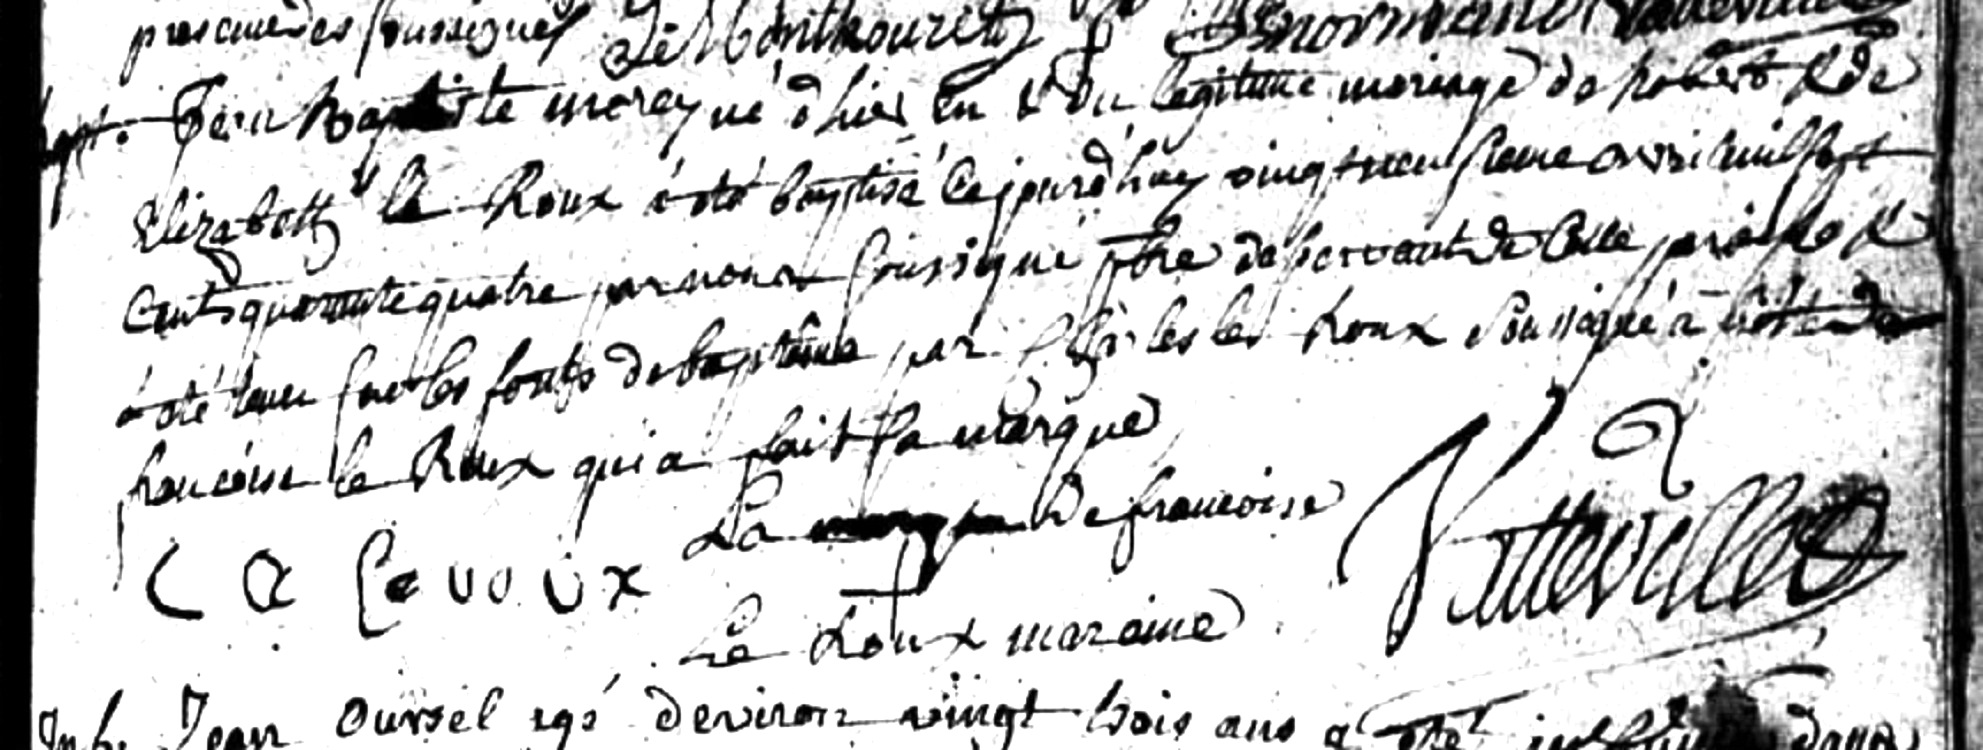 presence des soussignés
bapt. Jean Baptiste morey né d'hier en & du legitime mariage de Robert & de
Elizabeth le Roux a été baptisé cejourd'huy vingt neufsieme avril mil sept
cents quarante quatre par nous soussigné pbre desservant de cette paroisse &
a été levé sur les fonts de baptême par Charles le Roux soussigné &
francoise le Roux qui a fait sa marque
La marque De francoise
Le Roux maraine
C a Le roux
Vatteville
Inh. Jean Oursel agé d'environ vingt trois ans a été inhumé dans